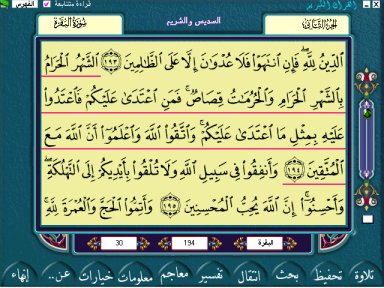 القرآن الكريم
قراءة متتابعة
الفهرس
الجزء الثاني
السديس والشريم
سورة البقرة
ٱلدِّينُ لِلَّهِ فَإِنِ ٱنتَهَوۡا۟ فَلَا عُدۡوَٰنَ إِلَّا عَلَى ٱلظَّـٰلِمِينَ ١٩٣ ٱلشَّهۡرُ ٱلۡحَرَامُ
بِٱلشَّهۡرِ ٱلۡحَرَامِ وَٱلۡحُرُمَـٰتُ قِصَاصٞ فَمَنِ ٱعۡتَدَىٰ عَلَيۡكُمۡ فَٱعۡتَدُوا۟
عَلَيۡهِ بِمِثۡلِ مَا ٱعۡتَدَىٰ عَلَيۡكُمۡ وَٱتَّقُوا۟ ٱللَّهَ وَٱعۡلَمُوٓا۟ أَنَّ ٱللَّهَ مَعَ
ٱلۡمُتَّقِينَ ١٩٤ وَأَنفِقُوا۟ فِي سَبِيلِ ٱللَّهِ وَلَا تُلۡقُوا۟ بِأَيۡدِيكُمۡ إِلَى ٱلتَّهۡلُكَةِ
وَأَحۡسِنُوٓا۟ إِنَّ ٱللَّهَ يُحِبُّ ٱلۡمُحۡسِنِينَ ١٩٥ وَأَتِمُّوا۟ ٱلۡحَجَّ وَٱلۡعُمۡرَةَ لِلَّهِ
البقرة 194 30
تلاوة تحفيظ بحث انتقال تفسير معاجم معلومات خيارات عن.. إنهاء